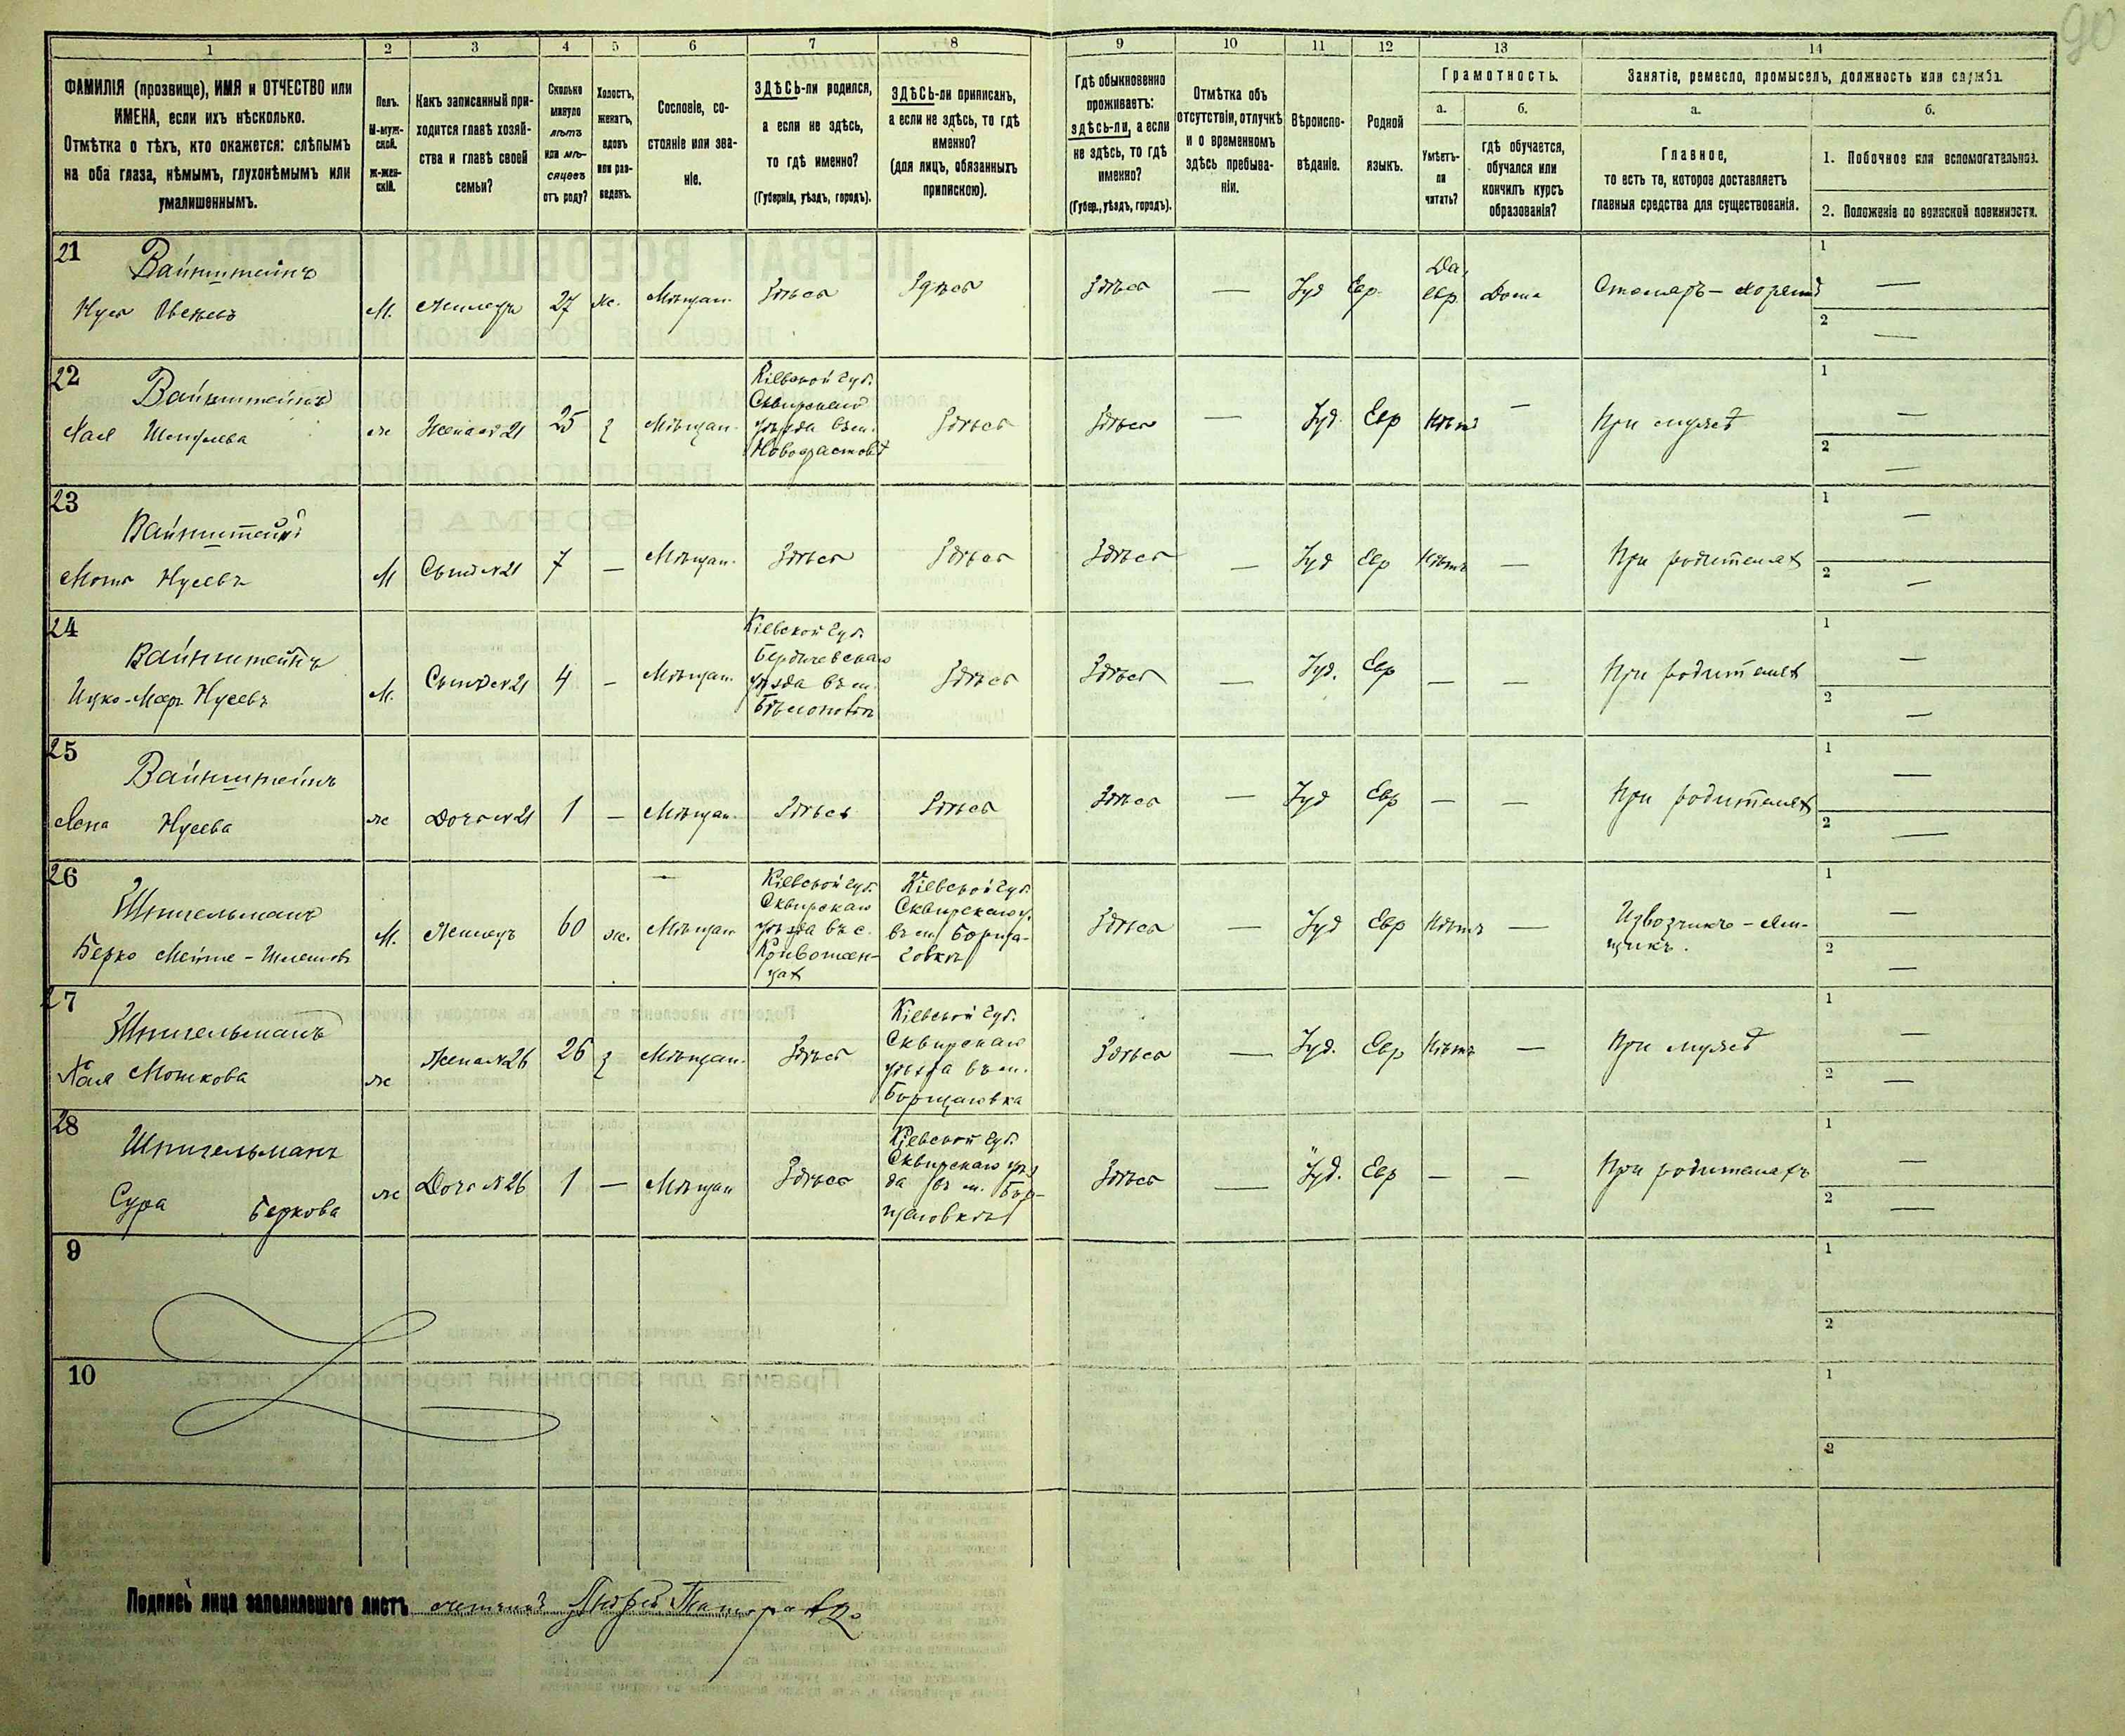 90
1 2 3 4 5 6 7 8 9 10 11 12 13 14
ФАМИЛІЯ (прозвище), ИМЯ и ОТЧЕСТВО или
ИМЕНА, если ихъ нѣсколько.
Отмѣтка о тѣхъ, кто окажется: слѣпымъ
на оба глаза, нѣмымъ, глухонѣмымъ или
умалишеннымъ.
Полъ.
М-муж-
ской.
ж-жен-
скій.
Какъ записанный при-
ходится главѣ хозяй-
ства и главѣ своей
семьи?
Сколько
минуло
лѣтъ
или мѣ-
сяцевъ
отъ роду?
Холостъ,
женатъ,
вдовъ
или раз-
веденъ.
Сословіе, со-
стояніе или зва-
ніе.
ЗДѢСЬ-ли родился,
а если не здѣсь,
то гдѣ именно?
(Губернія, уѣздъ, городъ).
ЗДѢСЬ-ли приписанъ,
а если не здѣсь, то гдѣ
именно?
(для лицъ, обязанныхъ
припискою).
Гдѣ обыкновенно
проживаетъ:
здѣсь-ли, а если
не здѣсь, то гдѣ
именно?
(Губер., уѣздъ, городъ).
Отмѣтка объ
отсутствіи, отлучкѣ
и о временномъ
здѣсь пребыва-
ніи.
Вѣроиспо-
вѣданіе.
Родной
языкъ.
Грамотность.
а.
Умѣетъ-
ли
читать?
б.
гдѣ обучается,
обучался или
кончилъ курсъ
образованія?
Занятіе, ремесло, промыселъ, должность или служба.
а.
Главное,
то есть то, которое доставляетъ
главныя средства для существованія.
б.
1. Побочное или вспомогательное.
2. Положеніе по воинской повинности.
21
Вайнштейнъ
М. 27 ж. Мѣщан. Здѣсь Здѣсь Здѣсь — Іуд Евр. Да, евр. Дома Столяръ —
1 —
2 —
22
Вайнштейнъ
ж Жена № 21 25 з Мѣщан.
Кіевской губ.
Сквирскаго
уѣзда въ м.
Здѣсь Здѣсь — Іуд. Евр Нѣтъ — При мужѣ
1 —
2 —
23
Вайнштейнъ
Нусевъ
М Сынъ № 21 7 — Мѣщан. Здѣсь Здѣсь Здѣсь — Іуд Евр Нѣтъ — При родителяхъ
1 —
2 —
24
Вайнштейнъ
Нусевъ
М. Сынъ № 21 4 — Мѣщан.
Кіевской губ.
Бердичевскаго
уѣзда въ м.
Здѣсь Здѣсь — Іуд. Евр — — При родителяхъ
1 —
2 —
25
Вайнштейнъ
Нусева
ж Дочь № 21 1 — Мѣщан. Здѣсь Здѣсь Здѣсь — Іуд Евр — — При родителяхъ
1 —
2 —
26
Шпигельманъ
Берко
М. Жилецъ 60 ж. Мѣщан
Кіевской губ.
Сквирскаго
уѣзда въ с.
Кіевской губ.
Сквирскаго у.
въ м. Борща-
говкѣ
Здѣсь — Іуд Евр Нѣтъ — Извозчикъ — Ям-
щикъ.
1 —
2 —
27
Шпигельманъ
Хая Мошкова
ж Жена № 26 26 з Мѣщан. Здѣсь
Кіевской губ.
Сквирскаго
уѣзда въ м.
Борщаговка
Здѣсь — Іуд. Евр Нѣтъ — При мужѣ
1 —
2 —
28
Шпигельманъ
Сура Беркова
ж Дочь № 26 1 — Мѣщан Здѣсь
Кіевской губ.
Сквирскаго уѣз
да въ м. Бор-
щаговкѣ
Здѣсь — Іуд. Евр — — При родителяхъ
1 —
2 —
9
1
2
10
1
2
Подпись лица заполнявшаго листъ